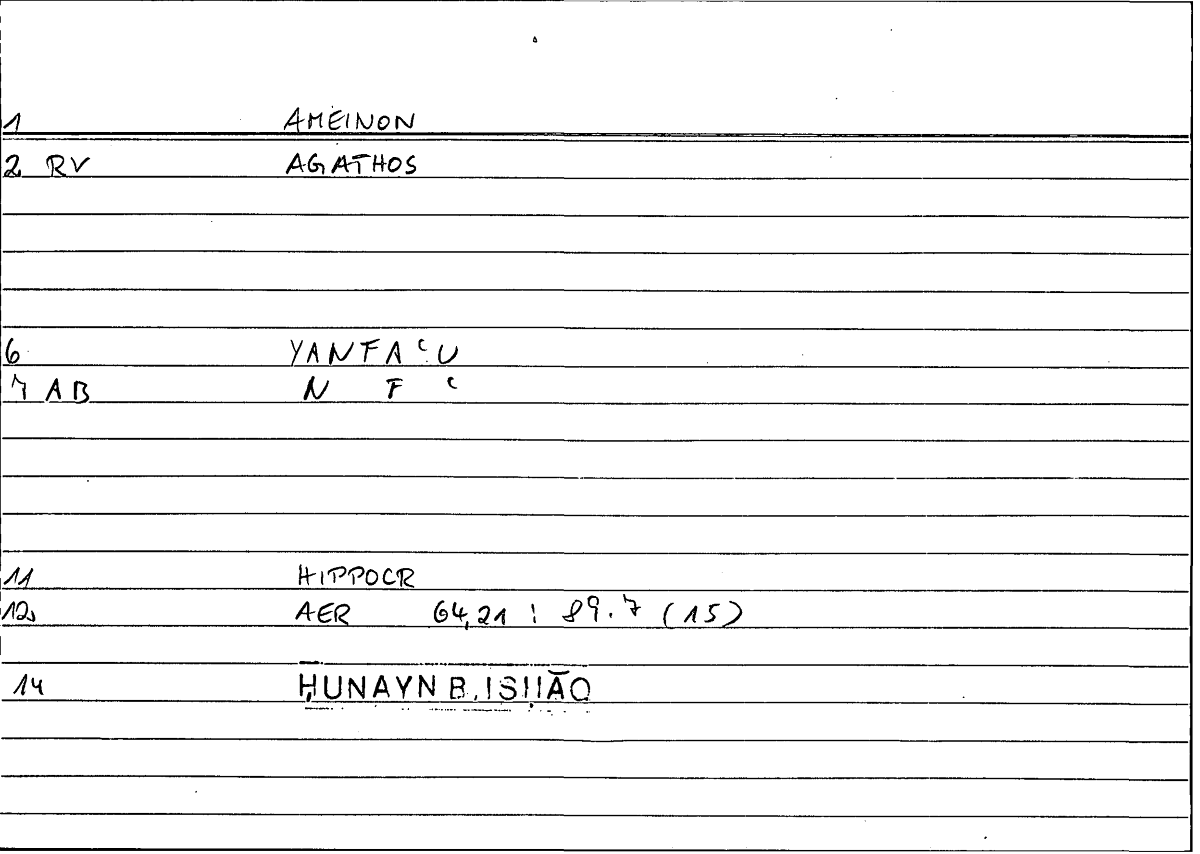 1 AMEINON
2 RV AGATHOS
6 YANFAʿU
7 AB N F ʿ
11 HIPPOCR
12 AER 64,21 : 89.7 (15)
14 ḤUNAYN B. ISḤĀQ